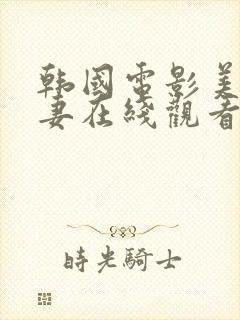 韩國電影美
妻在綫觀看
時光騎士